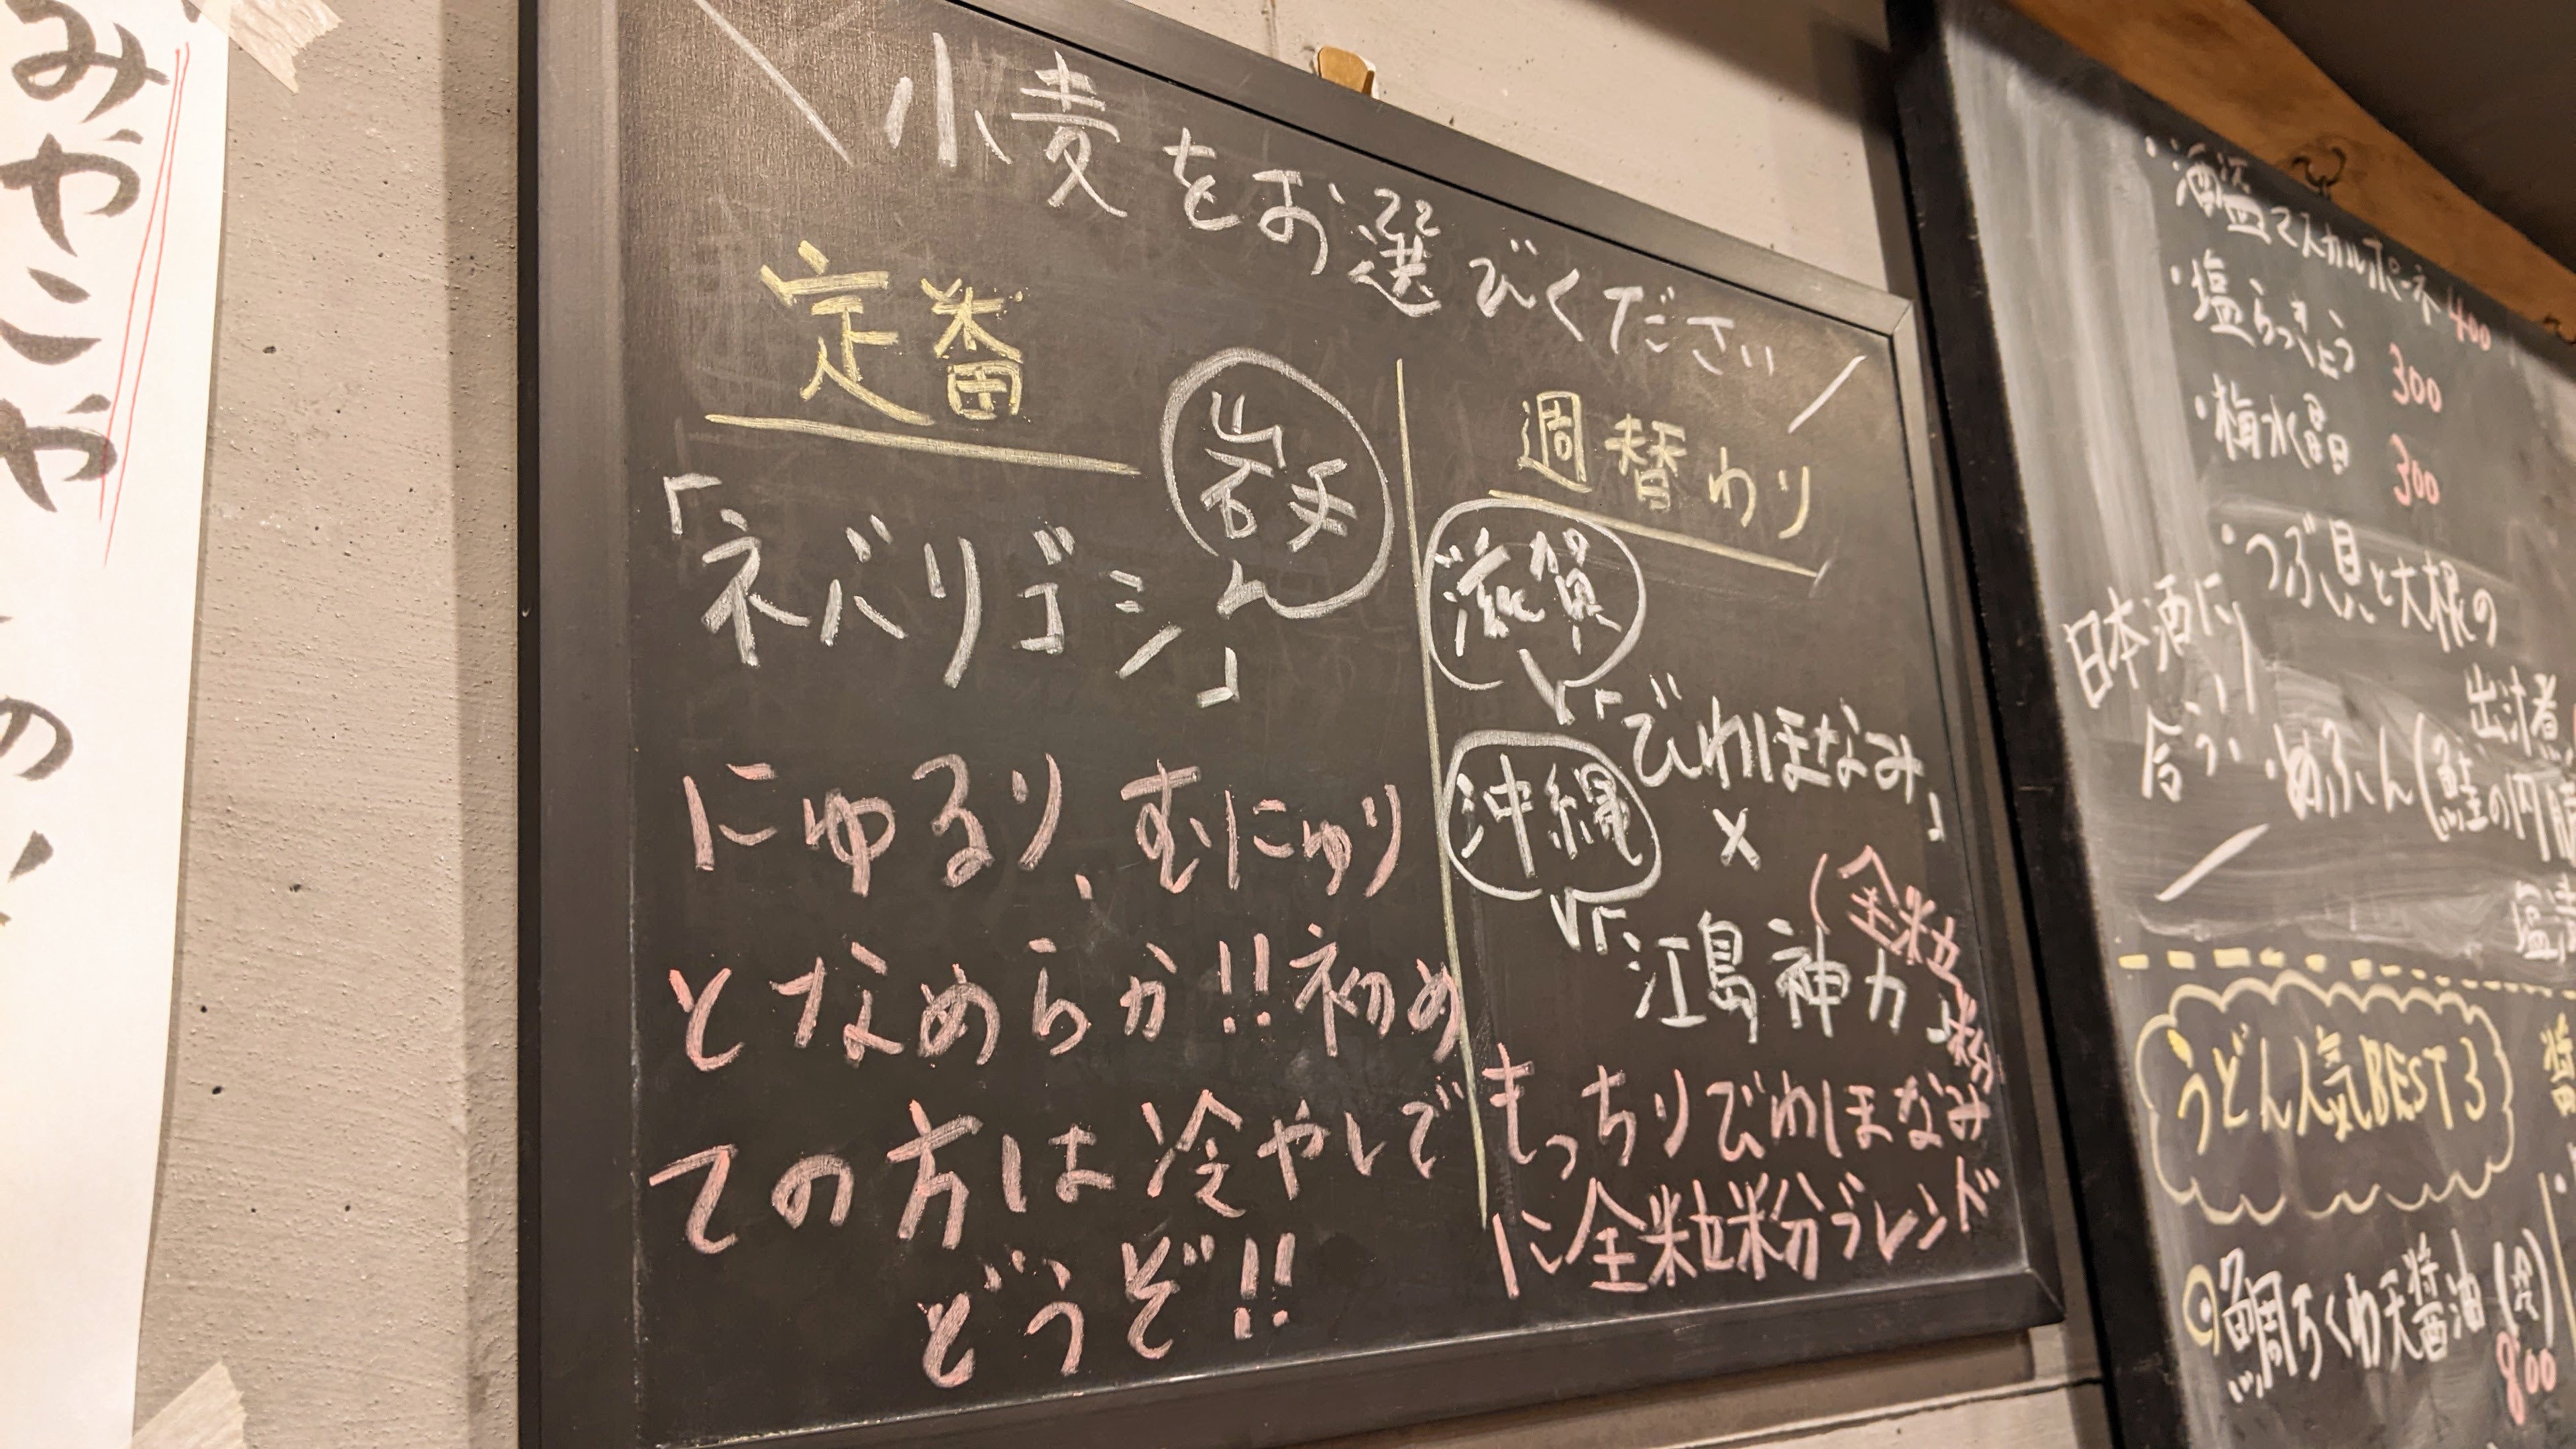 みやこや
の
小麦をお選びください
定番
岩手
「ネバリゴシ」
にゅるり、むにゅり
となめらか!!初め
ての方は冷やしで
どうぞ!!
週替わり
滋賀
「びわほなみ」
×
沖縄
「江島神力」
(全粒粉
もっちりびわほなみ
に全粒粉ブレンド
・酒盗マスカルポーネ 400
・塩らっきょう 300
・梅水晶 300
・つぶ貝と大根の
出汁煮
日本酒に
合う!
・めふん(鮭の内臓
塩
うどん人気BEST3
鯛ちくわ天醤油(冷)
800